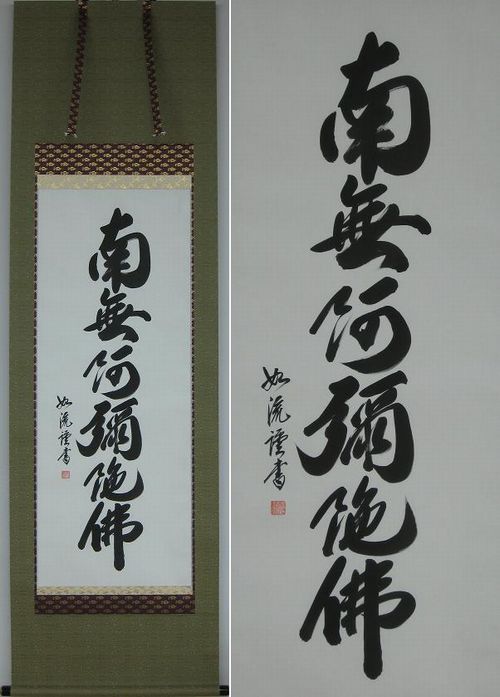 南無阿彌陀佛
如流謹書
南無阿彌陀佛
如流謹書